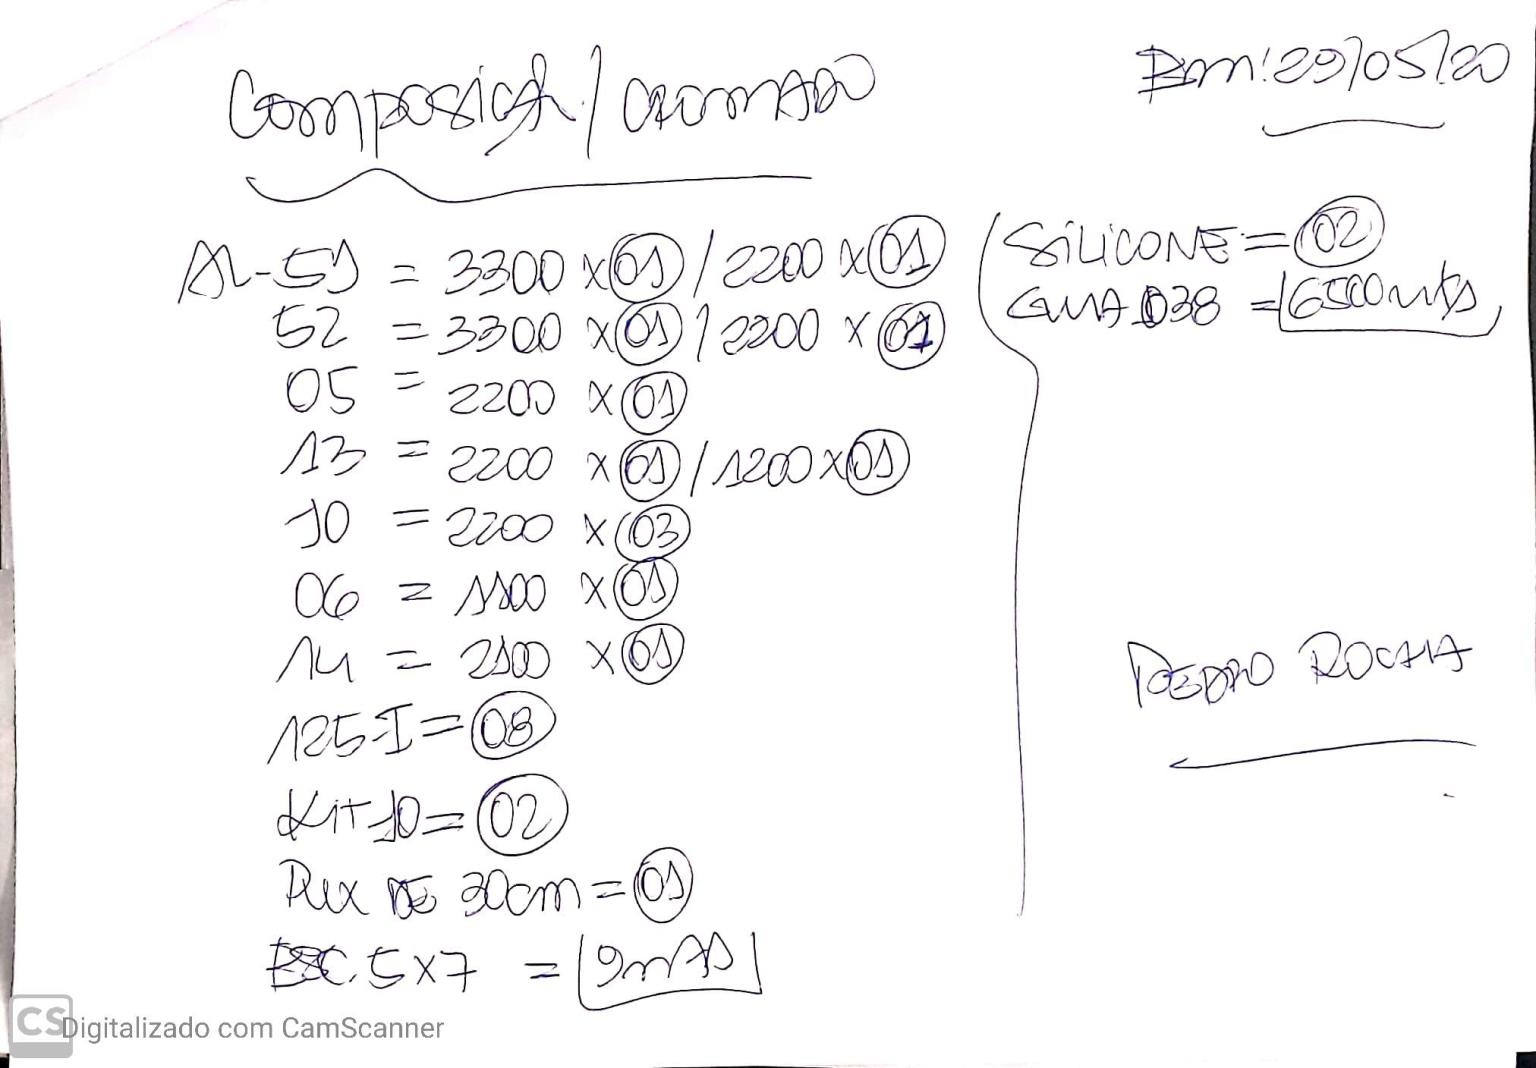 Composição / CROMADO
Bm: 29/05/20
AL-51 = 3300 x 01 / 2200 x 01
52 = 3300 x 01 / 2200 x 01
05 = 2200 x 01
13 = 2200 x 01 / 1200 x 01
10 = 2200 x 03
06 = 1100 x 01
14 = 2100 x 01
125-I = 08
KIT 10 = 02
Pux DE 30cm = 01
ESC. 5x7 = 9mts
SILICONE = 02
GUA 038 = 6500mts
PEDRO ROCHA
CS Digitalizado com CamScanner